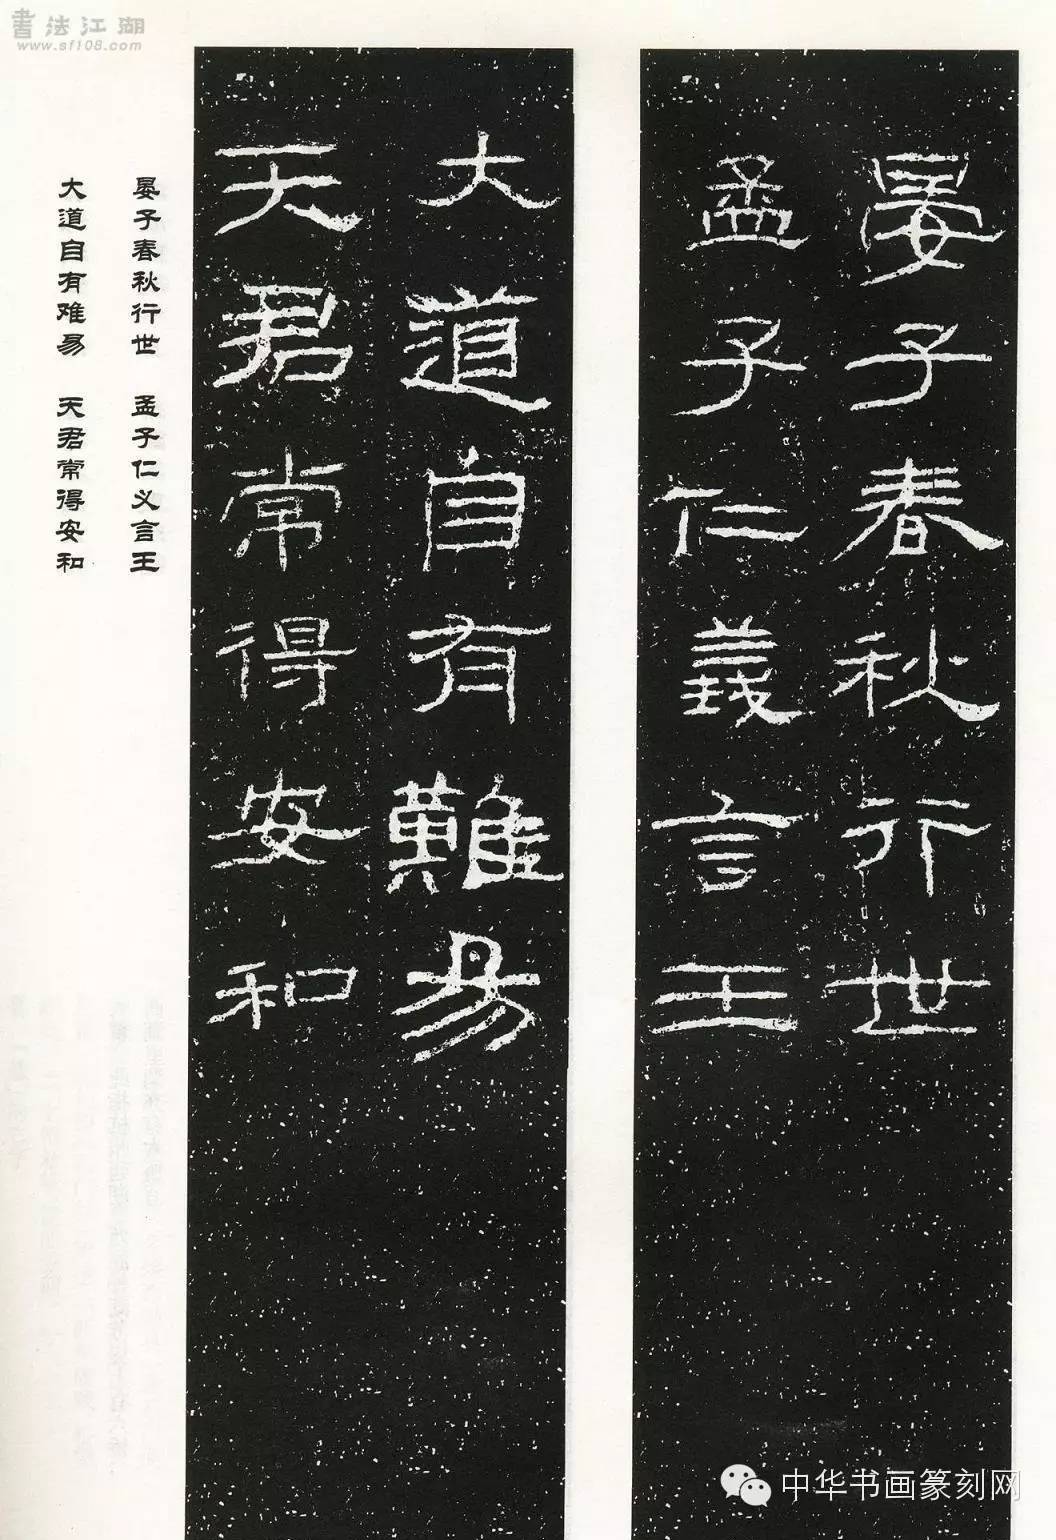 書法江湖
www.sf108.com
晏子春秋行世
孟子仁義言王
大道自有難易
天君常得安和
晏子春秋行世 孟子仁义言王
大道自有难易 天君常得安和
中华书画篆刻网